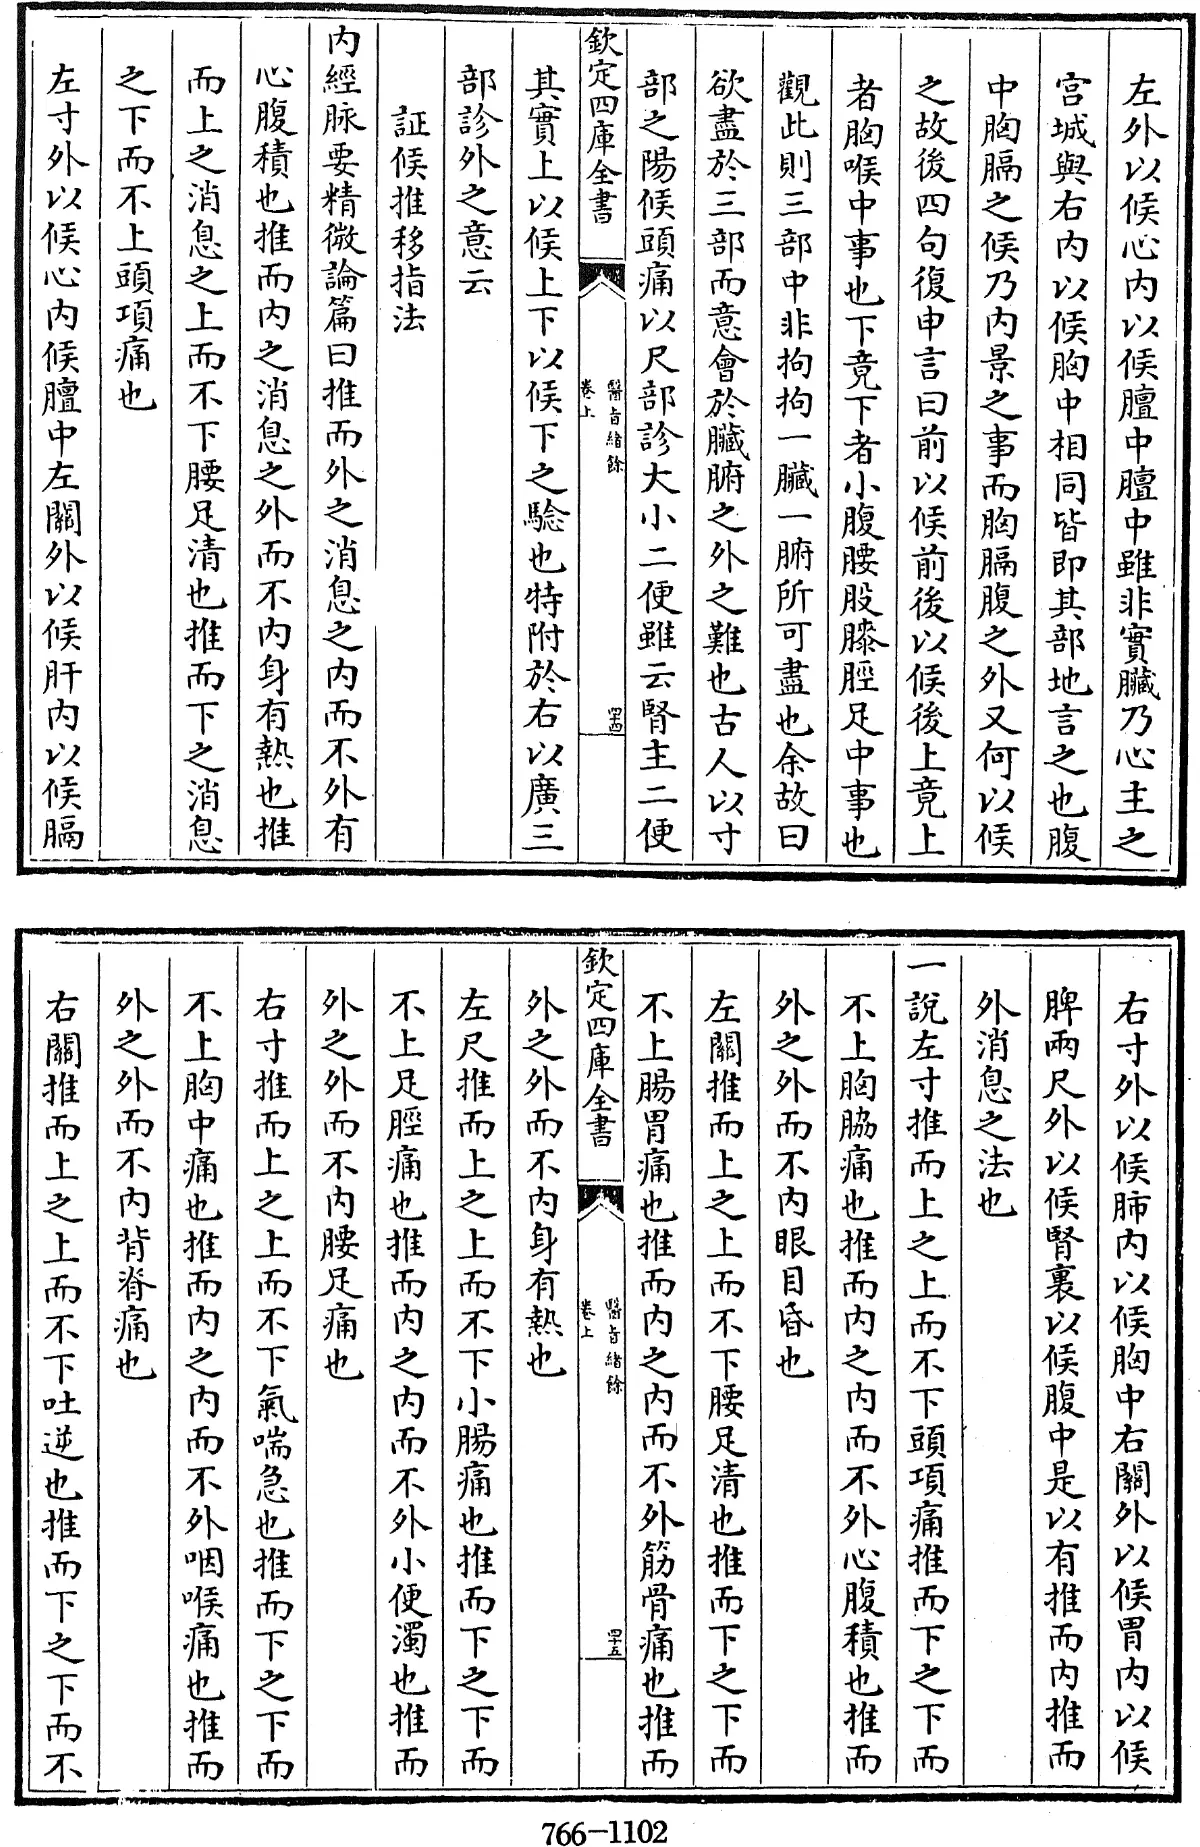 左外以候心内以候膻中膻中雖非實臟乃心主之
宫城與右内以候胸中相同皆即其部地言之也腹
中胸膈之候乃内景之事而胸膈腹之外又何以候
之故後四句復申言曰前以候前後以候後上竟上
者胸喉中事也下竟下者小腹腰股膝脛足中事也
觀此則三部中非拘拘一臟一腑所可盡也余故曰
欲盡於三部而意會於臟腑之外之難也古人以寸
部之陽候頭痛以尺部診大小二便雖云腎主二便
欽定四庫全書
醫旨緒餘
卷上
四十四
其實上以候上下以候下之騐也特附於右以廣三
部診外之意云
証候推移指法
内經脉要精微論篇曰推而外之消息之内而不外有
心腹積也推而内之消息之外而不内身有熱也推
而上之消息之上而不下腰足清也推而下之消息
之下而不上頭項痛也
左寸外以候心内候膻中左關外以候肝内以候膈
右寸外以候肺内以候胸中右關外以候胃内以候
脾兩尺外以候腎裏以候腹中是以有推而内推而
外消息之法也
一說左寸推而上之上而不下頭項痛推而下之下而
不上胸脇痛也推而内之内而不外心腹積也推而
外之外而不内眼目昏也
左關推而上之上而不下腰足清也推而下之下而
不上腸胃痛也推而内之内而不外筋骨痛也推而
欽定四庫全書
醫旨緒餘
卷上
四十五
外之外而不内身有熱也
左尺推而上之上而不下小腸痛也推而下之下而
不上足脛痛也推而内之内而不外小便濁也推而
外之外而不内腰足痛也
右寸推而上之上而不下氣喘急也推而下之下而
不上胸中痛也推而内之内而不外咽喉痛也推而
外之外而不内背脊痛也
右關推而上之上而不下吐逆也推而下之下而不
766-1102